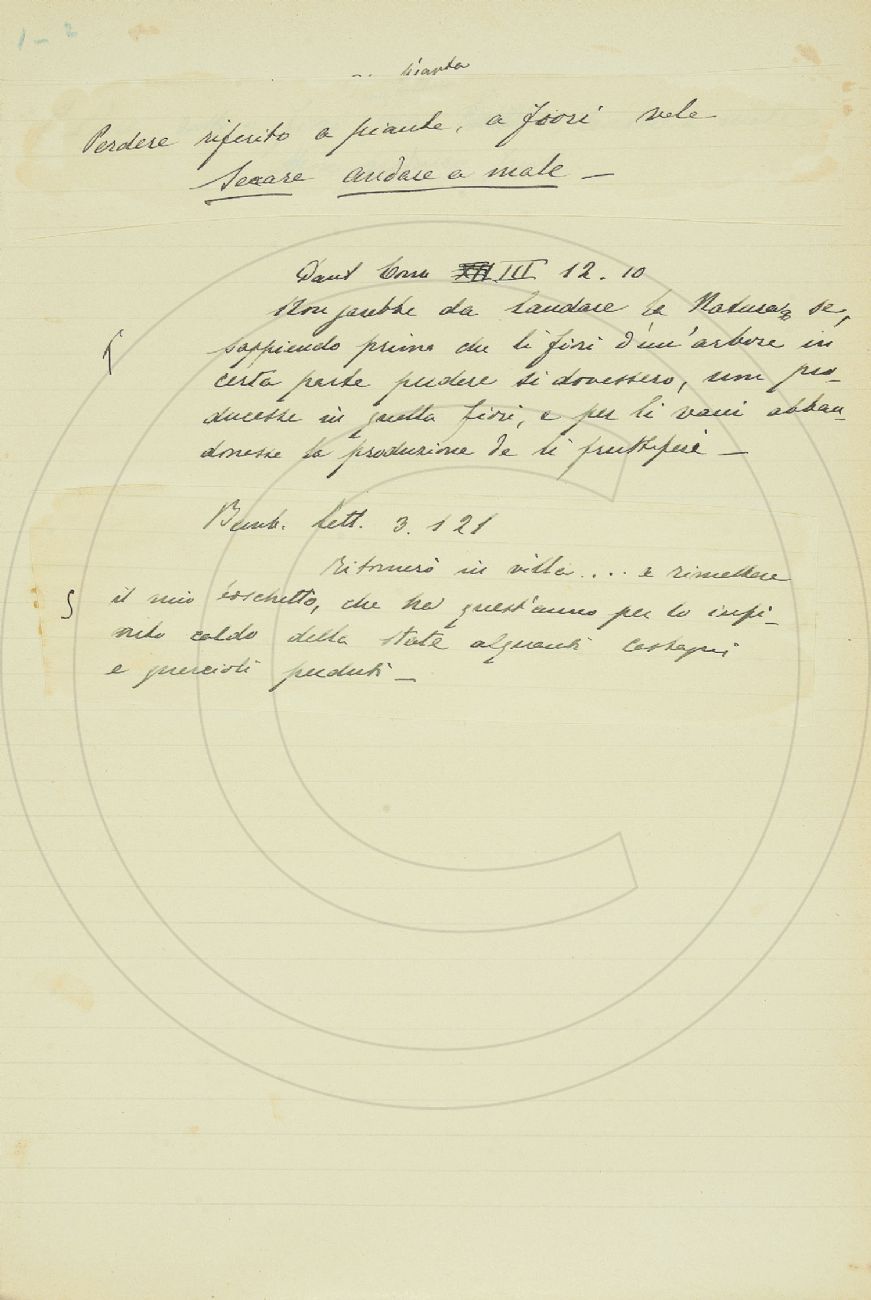 1 – 2
.. pianta
Perdere riferito a piante, a fiori vale
Seccare andare a male –
Dant Conv III 12. 10
Non sarebbe da laudare la Natura se,
sappiendo prima che li fiori d'un'arbore in
certa parte perdere si dovessero, non pro-
ducesse in quella fiori, e per li vani abban-
donasse la produzione de li fruttiferi –
T
Bemb. Lett. 3. 121
Ritornerò in villa.... e rimettere
il mio boschetto, che ha quest'anno per lo infi-
nito caldo della state alquanti castagni
e quercioli perduti –
S